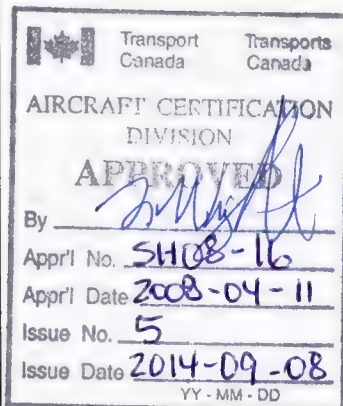 Transport Transports
Canada Canada
AIRCRAFT CERTIFICATION
DIVISION
APPROVED
By
Appr'l No. SH08-16
Appr'l Date 2008-04-11
Issue No. 5
Issue Date 2014-09-08
YY - MM - DD